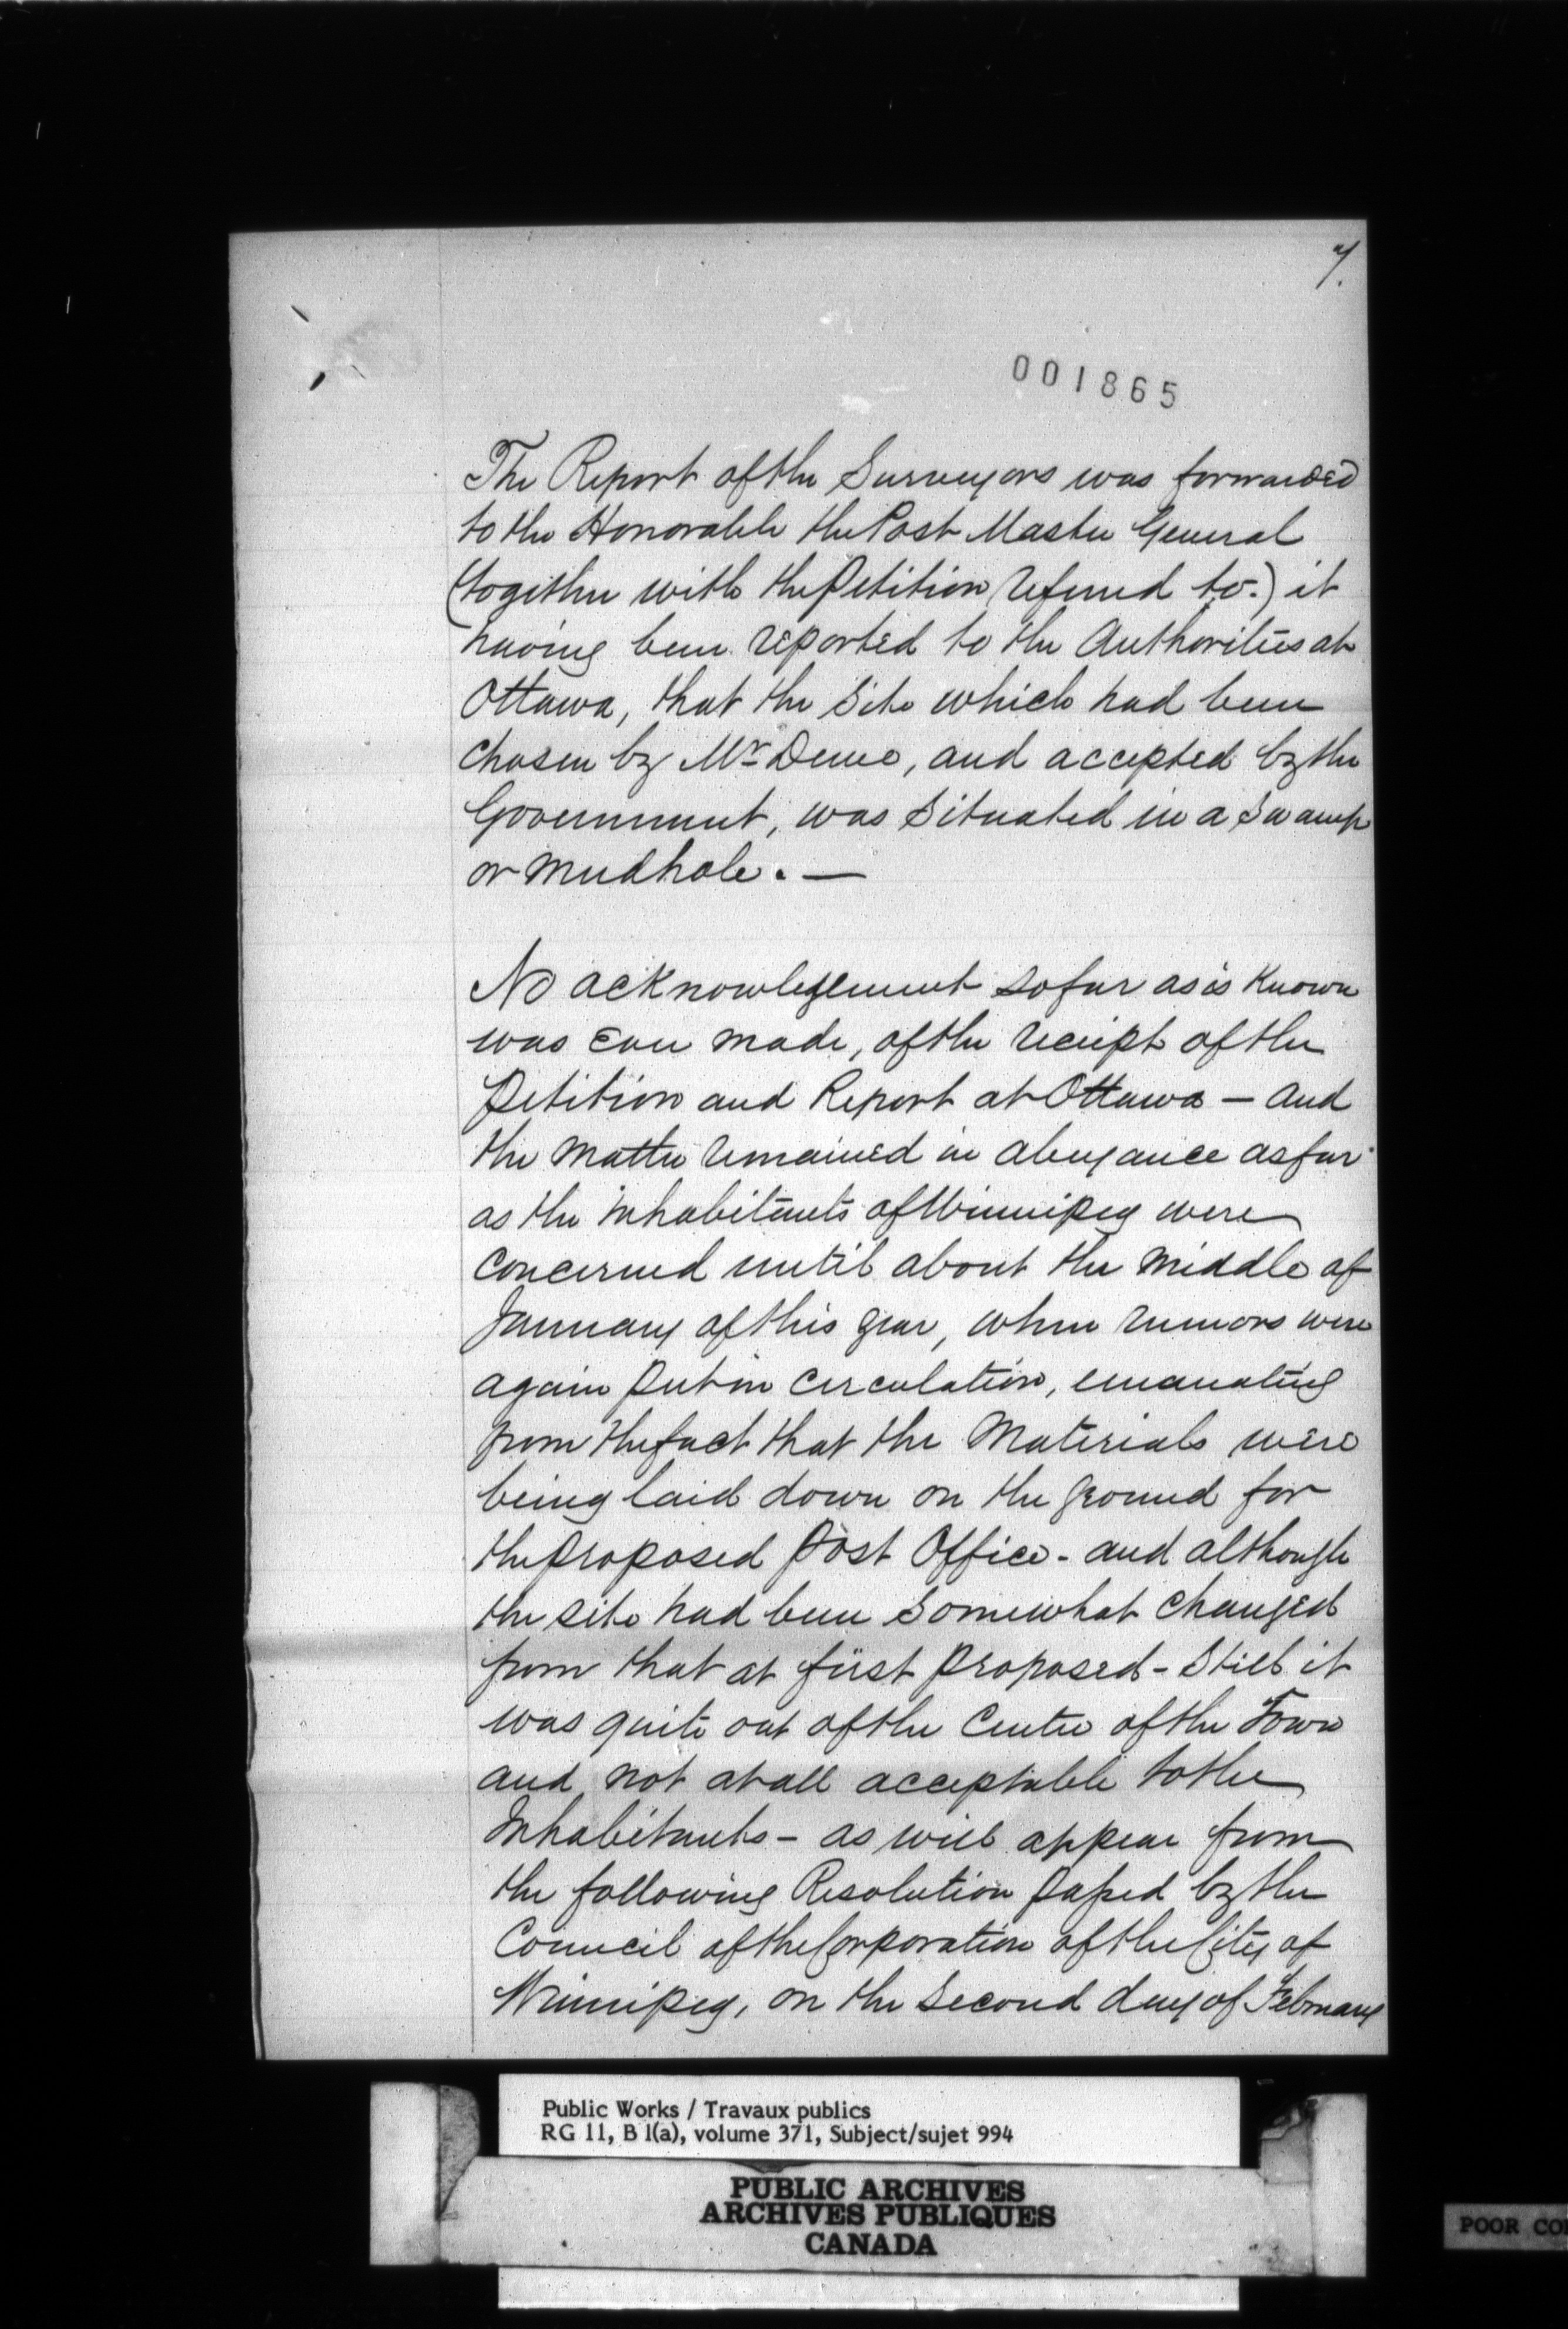 7.
001865
The Report of the Surveyors was forwarded
to the Honorable the Post Master General
(together with the Petition referred to.) it
having been reported to the Authorities at
Ottawa, that the Site which had been
chosen by Mr Dewe, and accepted by the
Government, was situated in a Swamp
or mudhole. —
No acknowlegement so far as is Known
was ever made, of the receipt of the
Petition and Report at Ottawa — and
the matter remained in abeyance as far
as the inhabitants of Winnipeg were
concerned until about the middle of
January of this year, when rumors were
again put in circulation, emanating
from the fact that the Materials were
being laid down on the ground for
the proposed Post Office - and although
the site had been somewhat changed
from that at first proposed - Still it
was quite out of the Centre of the Town
and not at all acceptable to the
Inhabitants - as will appear from
the following Resolution passed by the
Council of the Corporation of the City of
Winnipeg, on the second day of February
Public Works / Travaux publics
RG 11, B 1(a), volume 371, Subject/sujet 994
PUBLIC ARCHIVES
ARCHIVES PUBLIQUES
CANADA
POOR CO